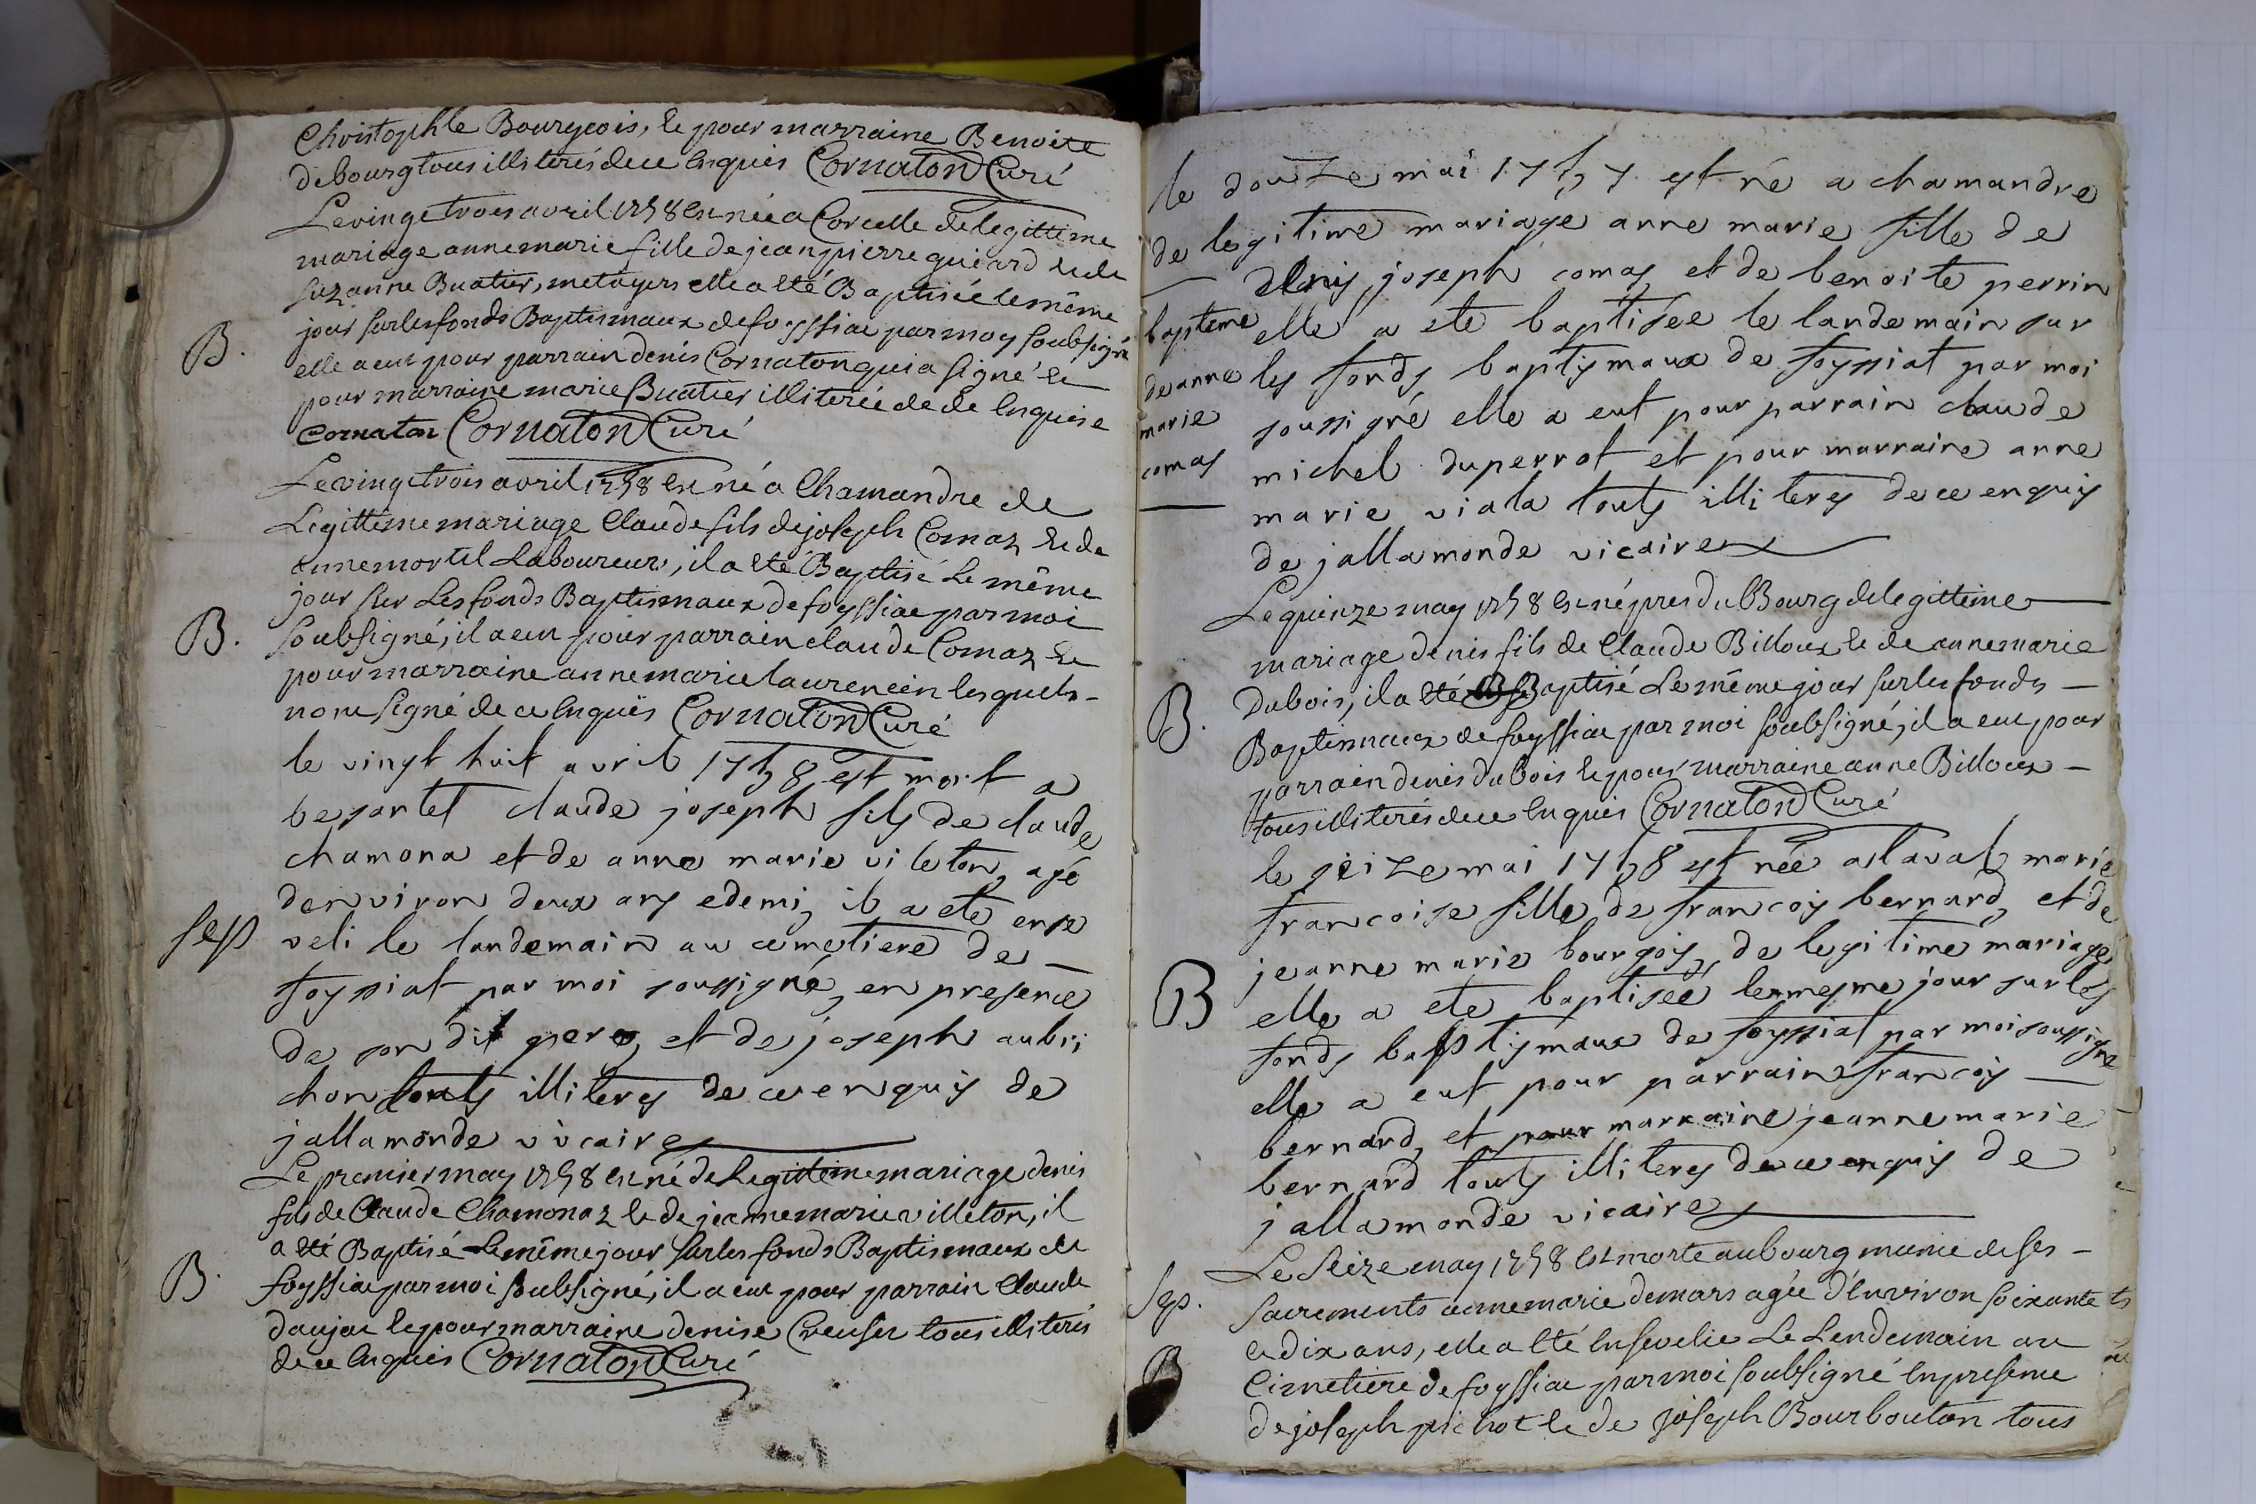 Christophle Bourgeois, et pour marraine Benoite
debourg tous illiterés de ce enquis Cornaton Curé
Le vingt trois avril 1758 est née a Corcelle de legittime
mariage anne marie fille de jean pierre guiard et de
suzanne Buatier, metayers elle a été Baptisée le même
jour sur les fonds Baptismaux de foyssiat par moy soubsigné
B.
elle a eut pour parrain denis Cornaton qui a signé et
pour marraine marie Buatier illiterée de ce enquise
Cornaton Cornaton Curé
Le vingt trois avril 1758 est né a Chamandre de
Legittime mariage Claude fils de joseph Comaz et de
anne mortel Laboureurs, il a été Baptisé Le même
jour sur Les fonds Baptismaux de foyssiat par moi
B.
soubsigné, il a eut pour parrain claude Comaz et
pour marraine anne marie laurencin lesquels
n'ont signé de ce enquis Cornaton Curé
le vingt huit avril 1758 est mort a
besortel claude joseph fils de claude
chamona et de anne marie vileton, agé
denviron deux ans edemi, il a ete enze
sep
veli le landemain au cemetiere de
foyssiat par moi soussigné, en presence
de son dit pere, et de joseph aubri
chon touts illiteres de ce enquis de
jallamonde vicaire
Le premier may 1758 est né de Legittime mariage denis
fils de Claude Chamonaz et de jeanne marie villeton, il
a été Baptisé Le même jour sur les fonds Baptismaux de
B.
foyssiat par moi soubsigné, il a eut pour parrain Claude
daujat et pour marraine denise Creuset tous illiterés
de ce enquis Cornaton Curé
le douze mai 1757 est né a chamandre
de legitime mariage anne marie fille de
denis joseph comas et de benoite perrin
bapteme
elle a ete baptisee le landemain sur
de anne
les fonds baptismaux de foyssiat par moi
marie
soussigné elle a eut pour parrain claude
comas
michel duperrot et pour marraine anne
marie viala touts illiteres de ce enquis
de jallamonde vicaire
Le quinze may 1758 est né pres du Bourg de legittime
mariage denis fils de Claude Billoux et de anne marie
B.
Dubois, il a été Baptisé Le même jour sur les fonds
Baptismaux de foyssiat par moi soubsigné, il a eut pour
parrain denis dubois et pour marraine anne Billoux
tous illiterés de ce enquis Cornaton Curé
le seize mai 1758 est née a laval marie
francoise fille de francois bernard, et de
jeanne marie bourgois, de legitime mariage
B
elle a ete baptisée le mesme jour sur les
fonds baptismaux de foyssiat par moi soussigné
elle a eut pour parrain francois
bernard, et pour marraine jeanne marie
bernard touts illiteres de ce enquis de
jallamonde vicaire
Le Seize may 1758 est morte au bourg munie de ses
Sep.
sacrements anne marie demars agée d'Environ soixante
et dix ans, elle a été Ensevelie Le Lendemain au
B
Cimetiere de foyssiat par moi soubsigné En presence
de joseph pichot et de joseph Bourbouton tous